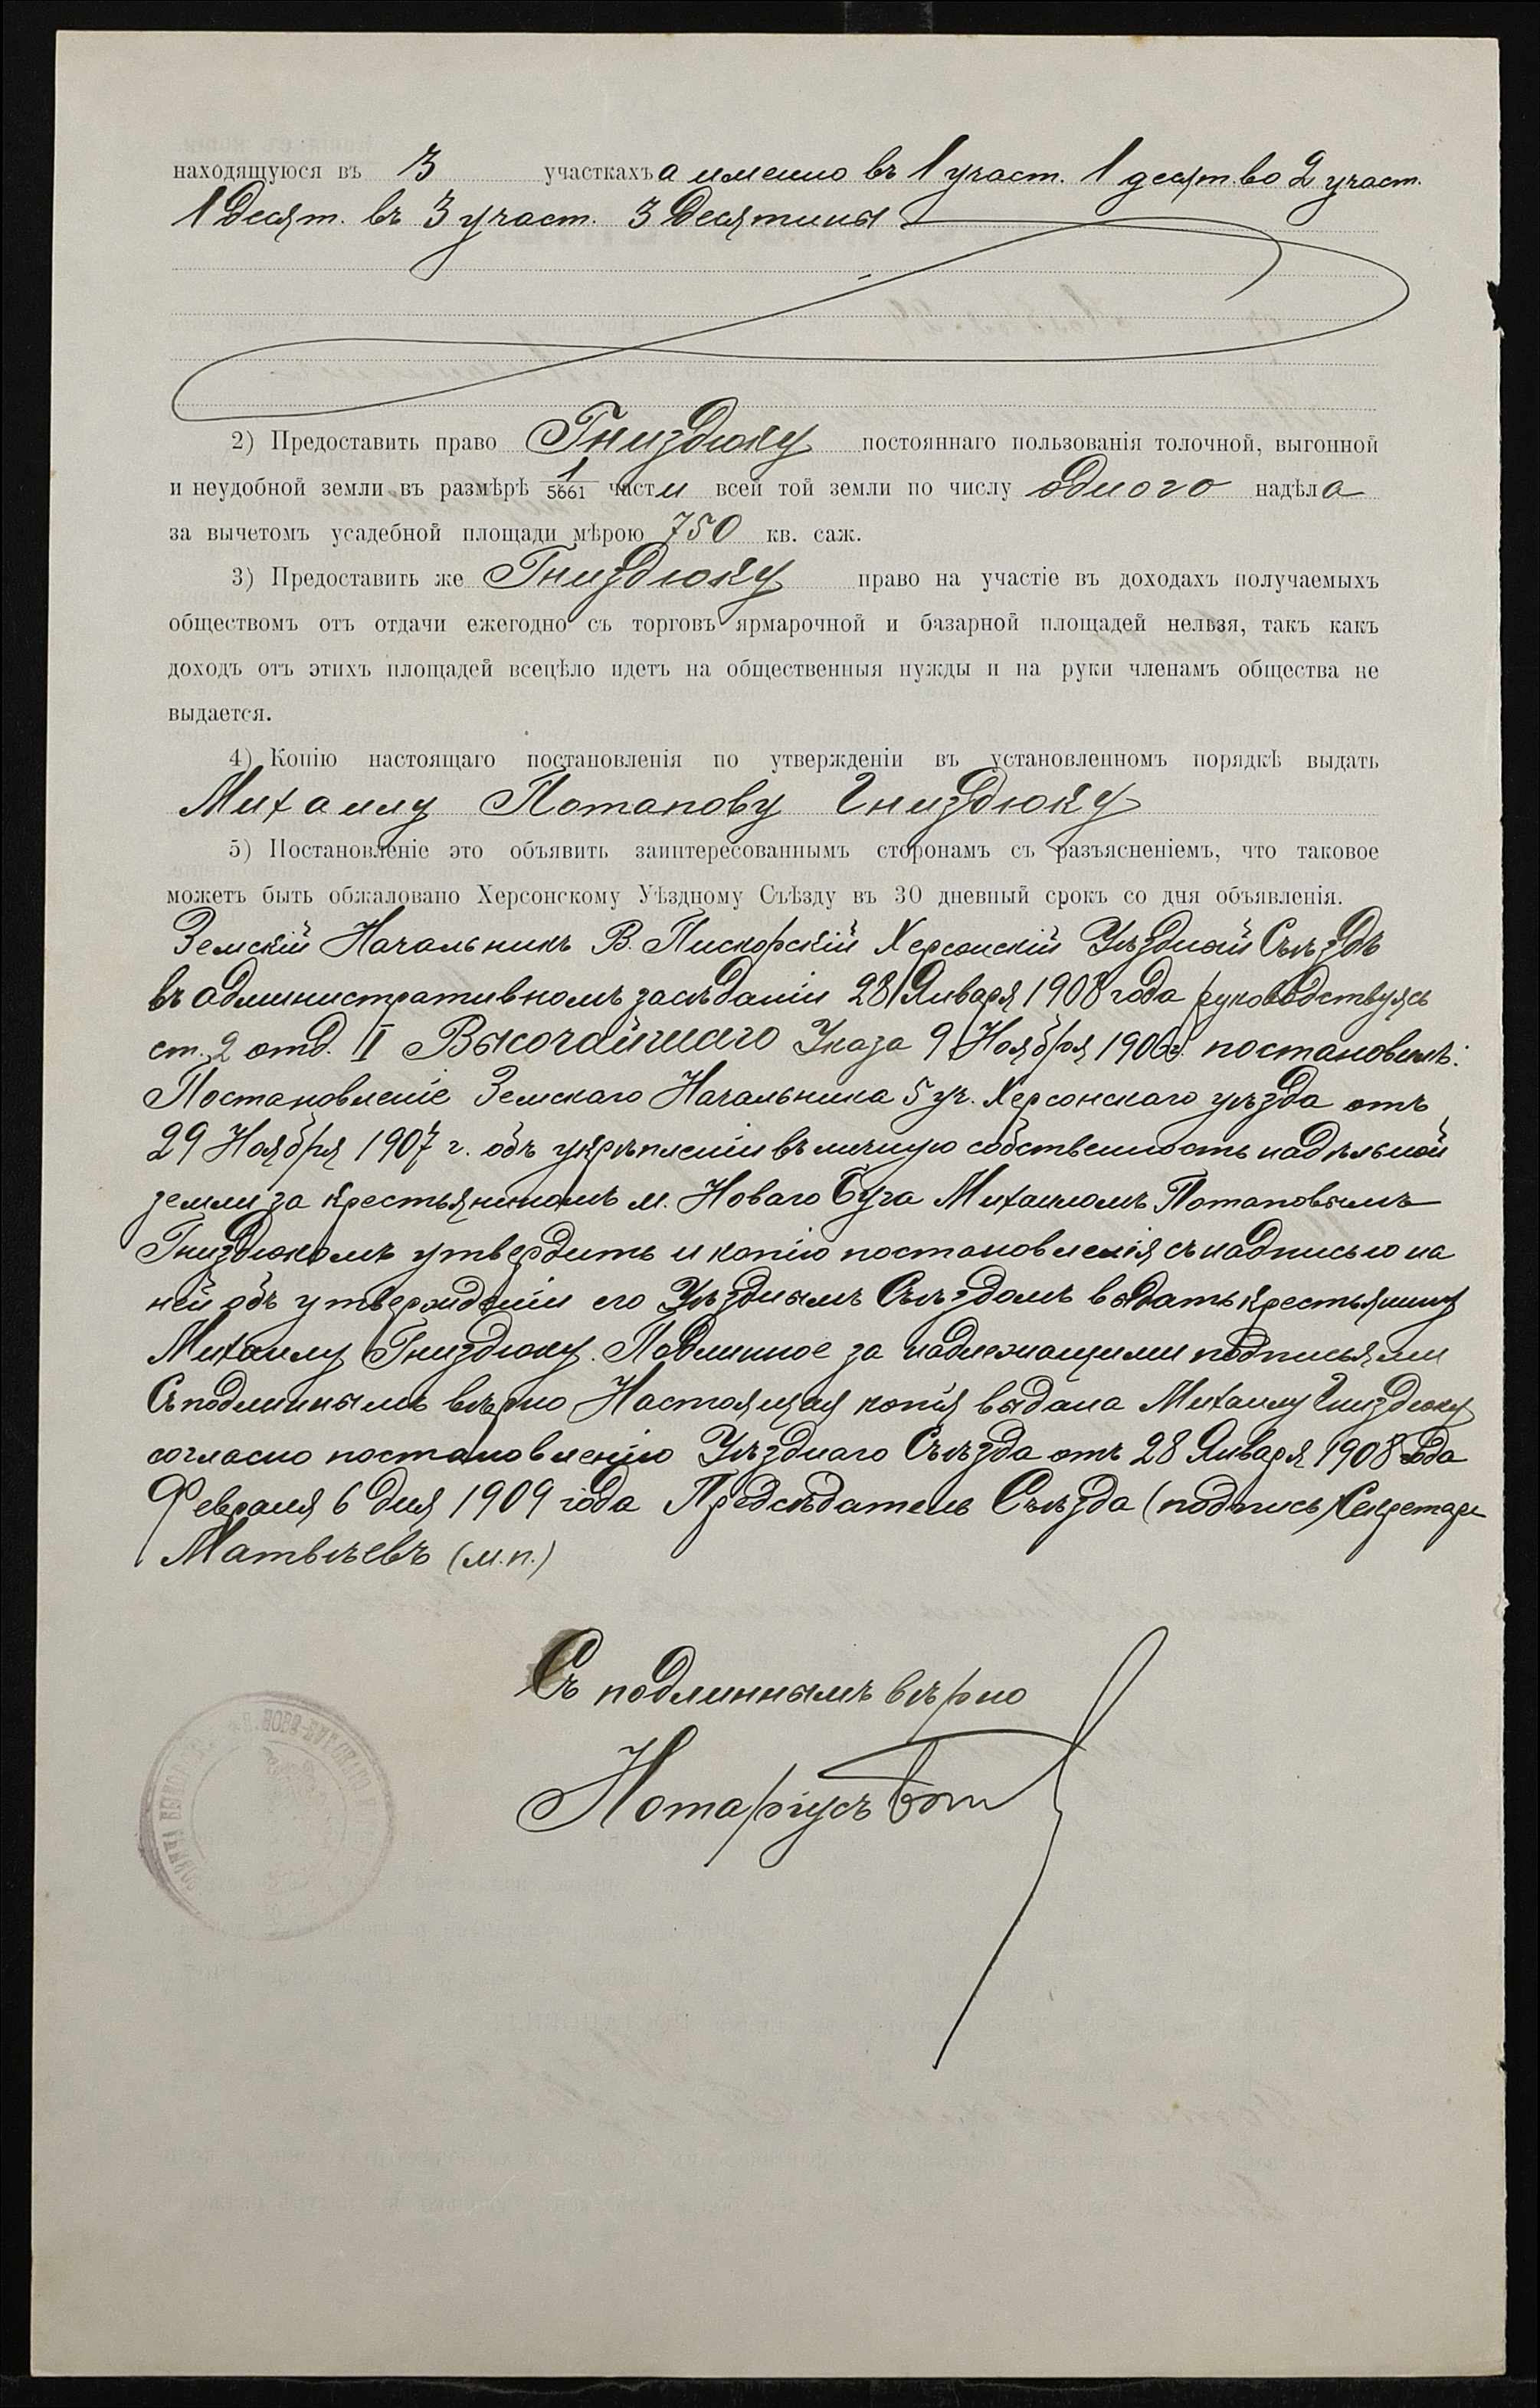 находящуюся въ 3 участкахъ а именно въ 1 участ. 1 десят. во 2 участ.
1 десят. въ 3 участ. 3 десятины
2) Предоставить право Гниздюку постояннаго пользованія толочной, выгонной
и неудобной земли въ размѣрѣ 1/5661 части всей той земли по числу одного надѣла
за вычетомъ усадебной площади мѣрою 750 кв. саж.
3) Предоставить же Гниздюку право на участіе въ доходахъ получаемыхъ
обществомъ отъ отдачи ежегодно съ торговъ ярмарочной и базарной площадей нельзя, такъ какъ
доходъ отъ этихъ площадей всецѣло идетъ на общественныя нужды и на руки членамъ общества не
выдается.
4) Копію настоящаго постановленія по утвержденіи въ установленномъ порядкѣ выдать
Михаилу Потапову Гниздюку
5) Постановленіе это объявить заинтересованнымъ сторонамъ съ разъясненіемъ, что таковое
можетъ быть обжаловано Херсонскому Уѣздному Съѣзду въ 30 дневный срокъ со дня объявленія.
Земскій Начальникъ В. Пискорскій Херсонскій Уѣздный Съѣздъ
въ административномъ засѣданіи 28 Января 1908 года руководствуясь
ст. 2 отд. II Высочайшаго Указа 9 Ноября 1906 г. постановилъ:
Постановленіе Земскаго Начальника 5 уч. Херсонскаго уѣзда отъ
29 Ноября 1907 г. объ укрѣпленіи въ личную собственность надѣльной
земли за крестьяниномъ м. Новаго Буга Михаиломъ Потаповымъ
Гниздюкомъ утвердить и копію постановленія съ надписью на
ней объ утвержденіи его Уѣзднымъ Съѣздомъ выдать крестьянину
Михаилу Гниздюку. Подлинное за надлежащими подписьями
Съ подлиннымъ вѣрно Настоящая копія выдана Михаилу Гниздюку
согласно постановленію Уѣзднаго Съѣзда отъ 28 Января 1908 года
Февраля 6 дня 1909 года Предсѣдатель Съѣзда (подпись) Секретарь
Матвѣевъ (м.п.)
Съ подлиннымъ вѣрно
Нотаріусъ